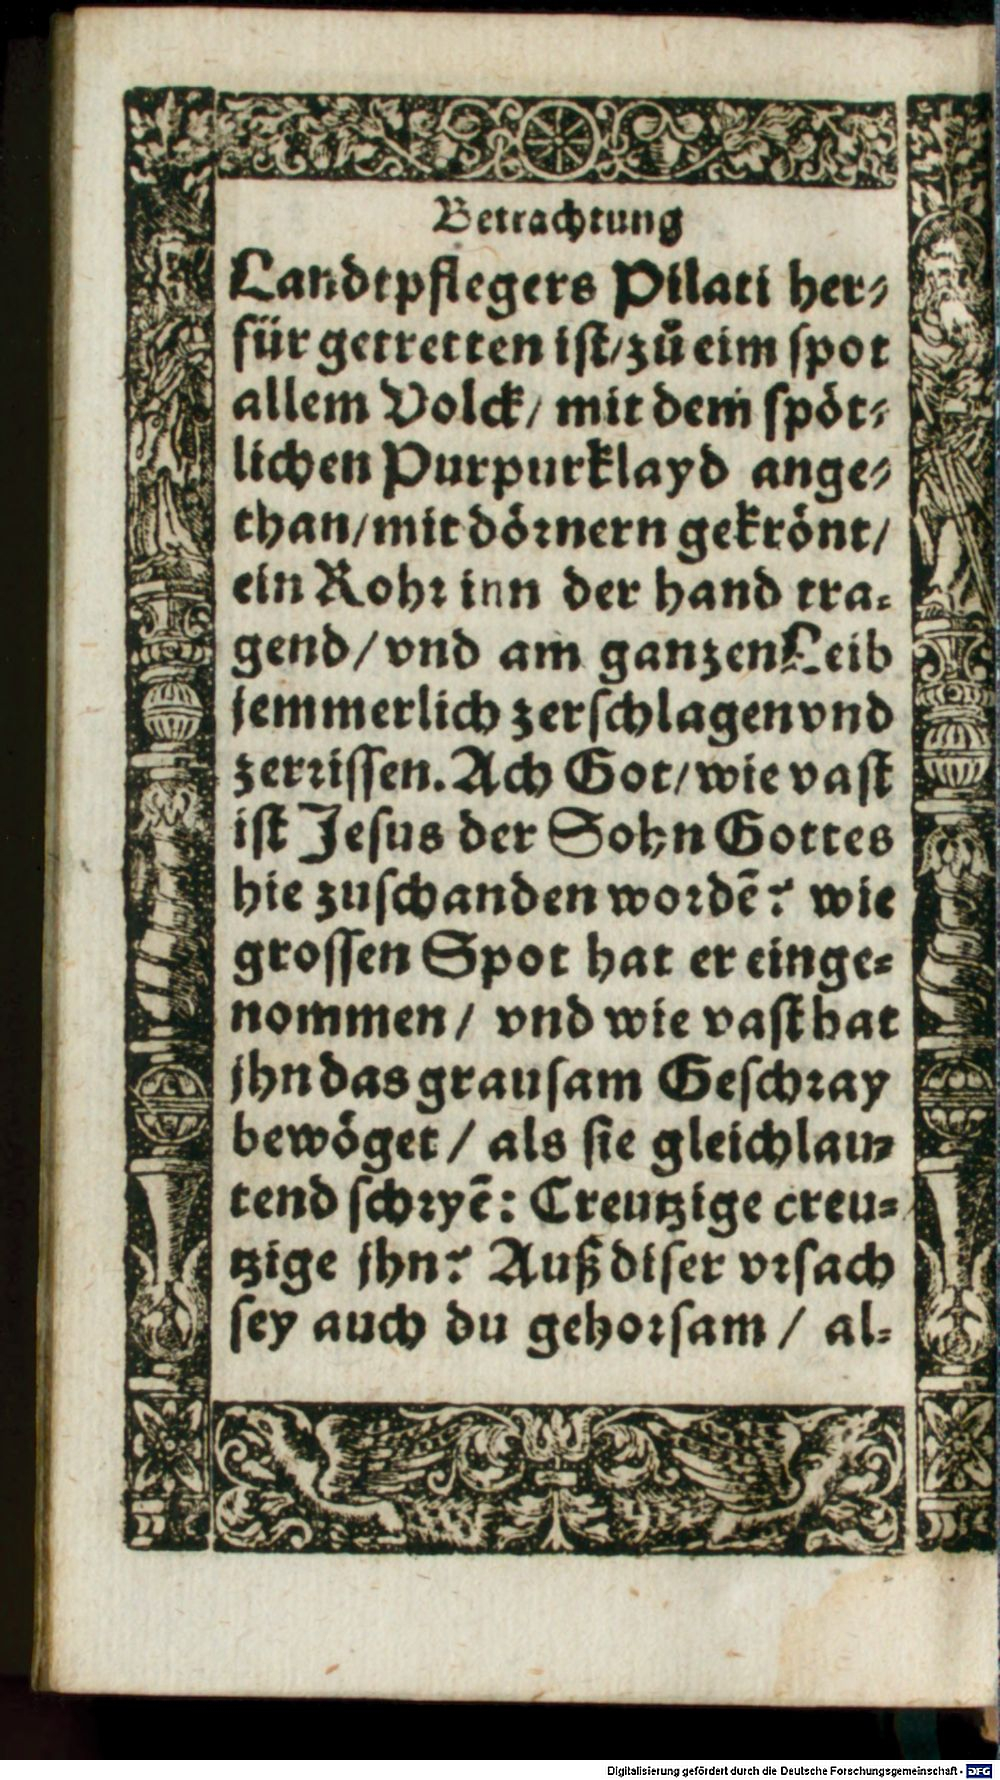 Betrachtung
Landtpflegers Pilati her⸗
für getretten ist/zů eim spot
allem Volck/ mit dem spöt⸗
lichen Purpurklayd ange⸗
than/mit dörnern gekrönt/
ein Rohr inn der hand tra⸗
gend/vnd am ganzen Leib
jemmerlich zerschlagen vnd
zerrissen. Ach Got/wie vast
ist Jesus der Sohn Gottes
hie zuschanden wordē? wie
grossen Spot hat er einge⸗
nommen/ vnd wie vast hat
jhn das grausam Geschray
bewöget/ als sie gleichlau⸗
tend schryē: Creutzige creu⸗
tzige jhn? Auß diser vrsach
sey auch du gehorsam/ al⸗
Digitalisierung gefördert durch die Deutsche Forschungsgemeinschaft - DFG